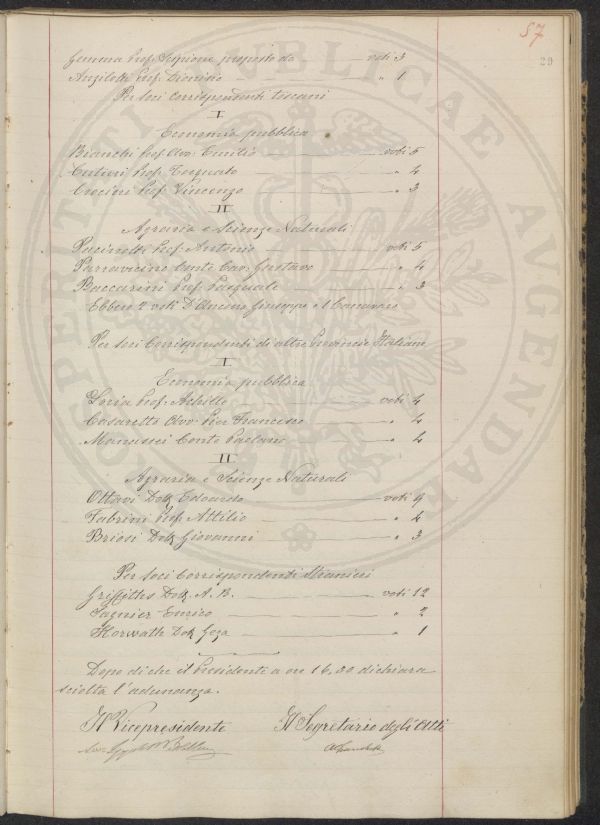 57
29
Gemma Prof. Scipione proposto da voti 3
Anzilotti Prof. Dionisio " 1
Per soci Corrispondenti toscani
I
Economia pubblica
Bianchi Prof. Avv. Emilio voti 5
Cutieri Prof. Torquato " 4
Crocioni Prof. Vincenzo " 3
II
Agraria e Scienze Naturali
Pacinotti Prof. Antonio voti 5
Parravicino Conte Cav. Gustavo " 4
Baccarini Prof. Pasquale " 3
Ebbero 2 voti D'Ancona Giuseppe e 1
Per soci Corrispondenti di altre Provincie Italiane
I
Economia pubblica
Loria Prof. Achille voti 4
Casaretto Avv. Pier Francesco " 4
Manassei Conte Paolano " 4
II
Agraria e Scienze Naturali
Ottavi Dott. Edoardo voti 9
Fabrini Prof. Attilio " 4
Briosi Dott. Giovanni " 3
Per soci Corrispondenti Stranieri
Griffiths Dott. A. B. voti 12
Sagnier Enrico " 2
Horwath Dott. Geza " 1
Dopo di che il Presidente a ore 16,00 dichiara
sciolta l'adunanza.
Il Vicepresidente Il Segretario degli Atti
PROSPERITATI PUBLICAE AUGENDAE